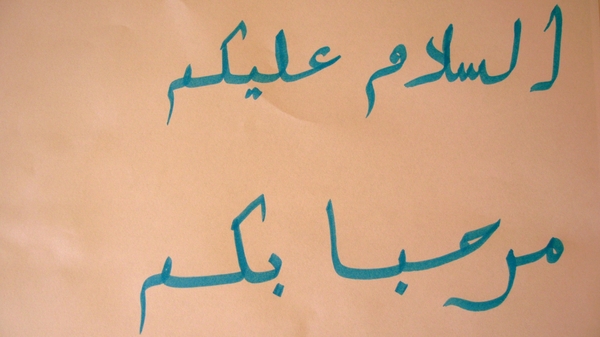 السلام عليكم
مرحبا بكم